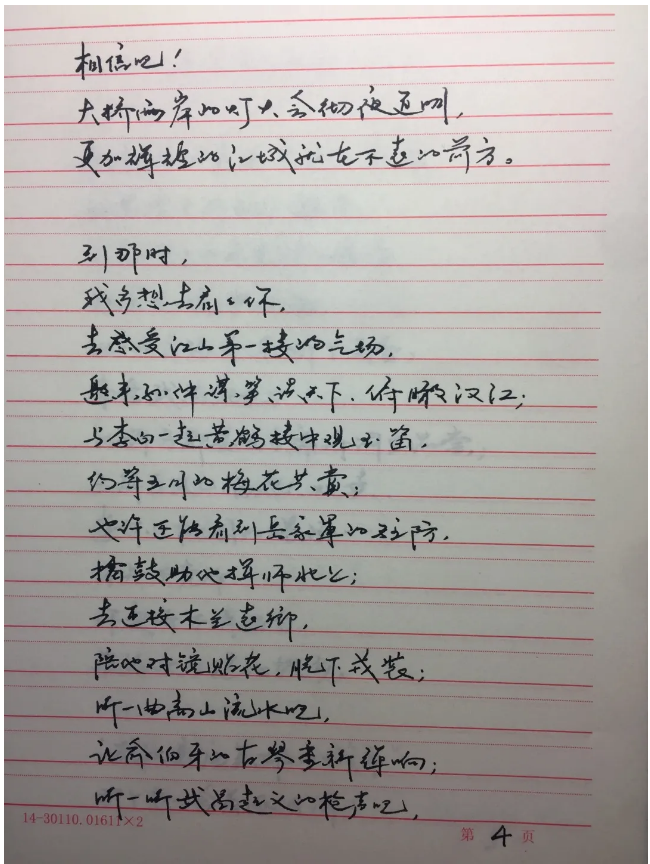 相信吧！
大桥两岸的灯火会彻夜通明，
更加辉煌的江城就在不远的前方。
到那时，
我多想去看看你，
去感受江山第一楼的气场，
邀来孙仲谋，笑谈天下，俯瞰汉江；
与李白一起黄鹤楼中观玉笛，
约等五月的梅花共赏；
也许还能看到岳家军的驻防，
擂鼓助他挥师北上；
去迎接木兰还乡，
陪她对镜贴花，脱下戎装；
听一曲高山流水吧，
让俞伯牙的古琴重新弹响；
听一听武昌起义的枪声吧，
14-30110.01611×2
第 4 页